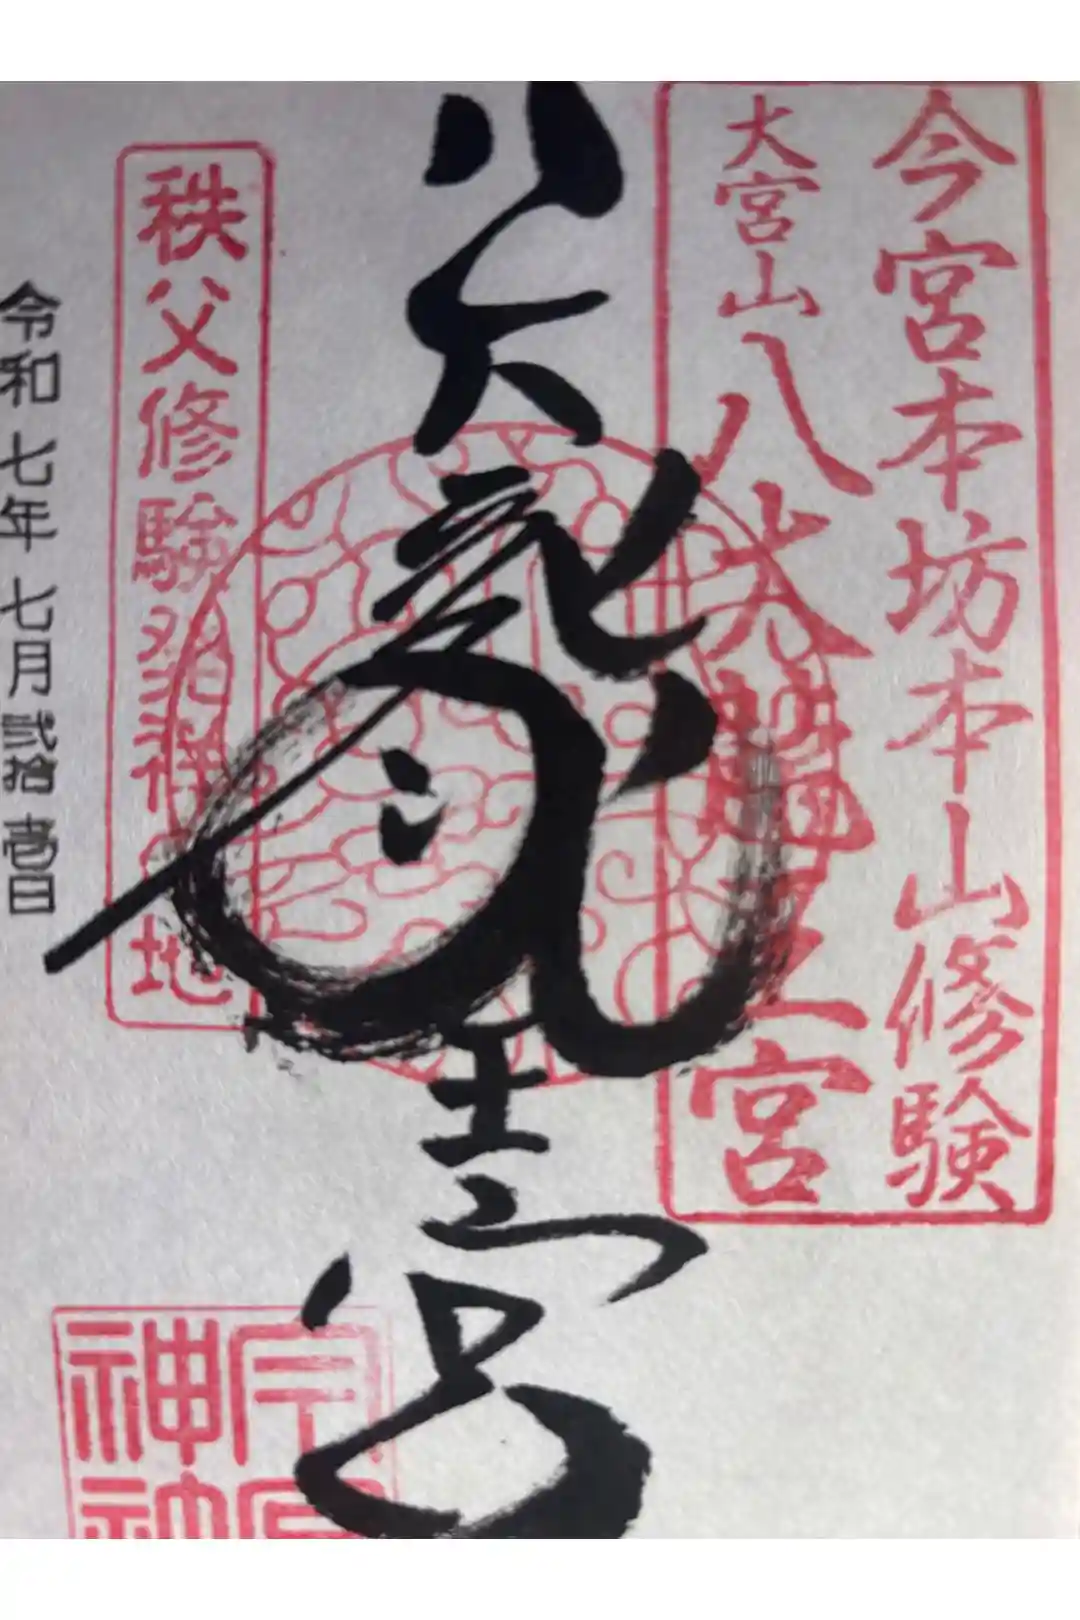 今宮本坊本山修験
大宮山八大龍王宮
八大龍王宮
秩父修験発祥地
令和七年七月弐拾壱日